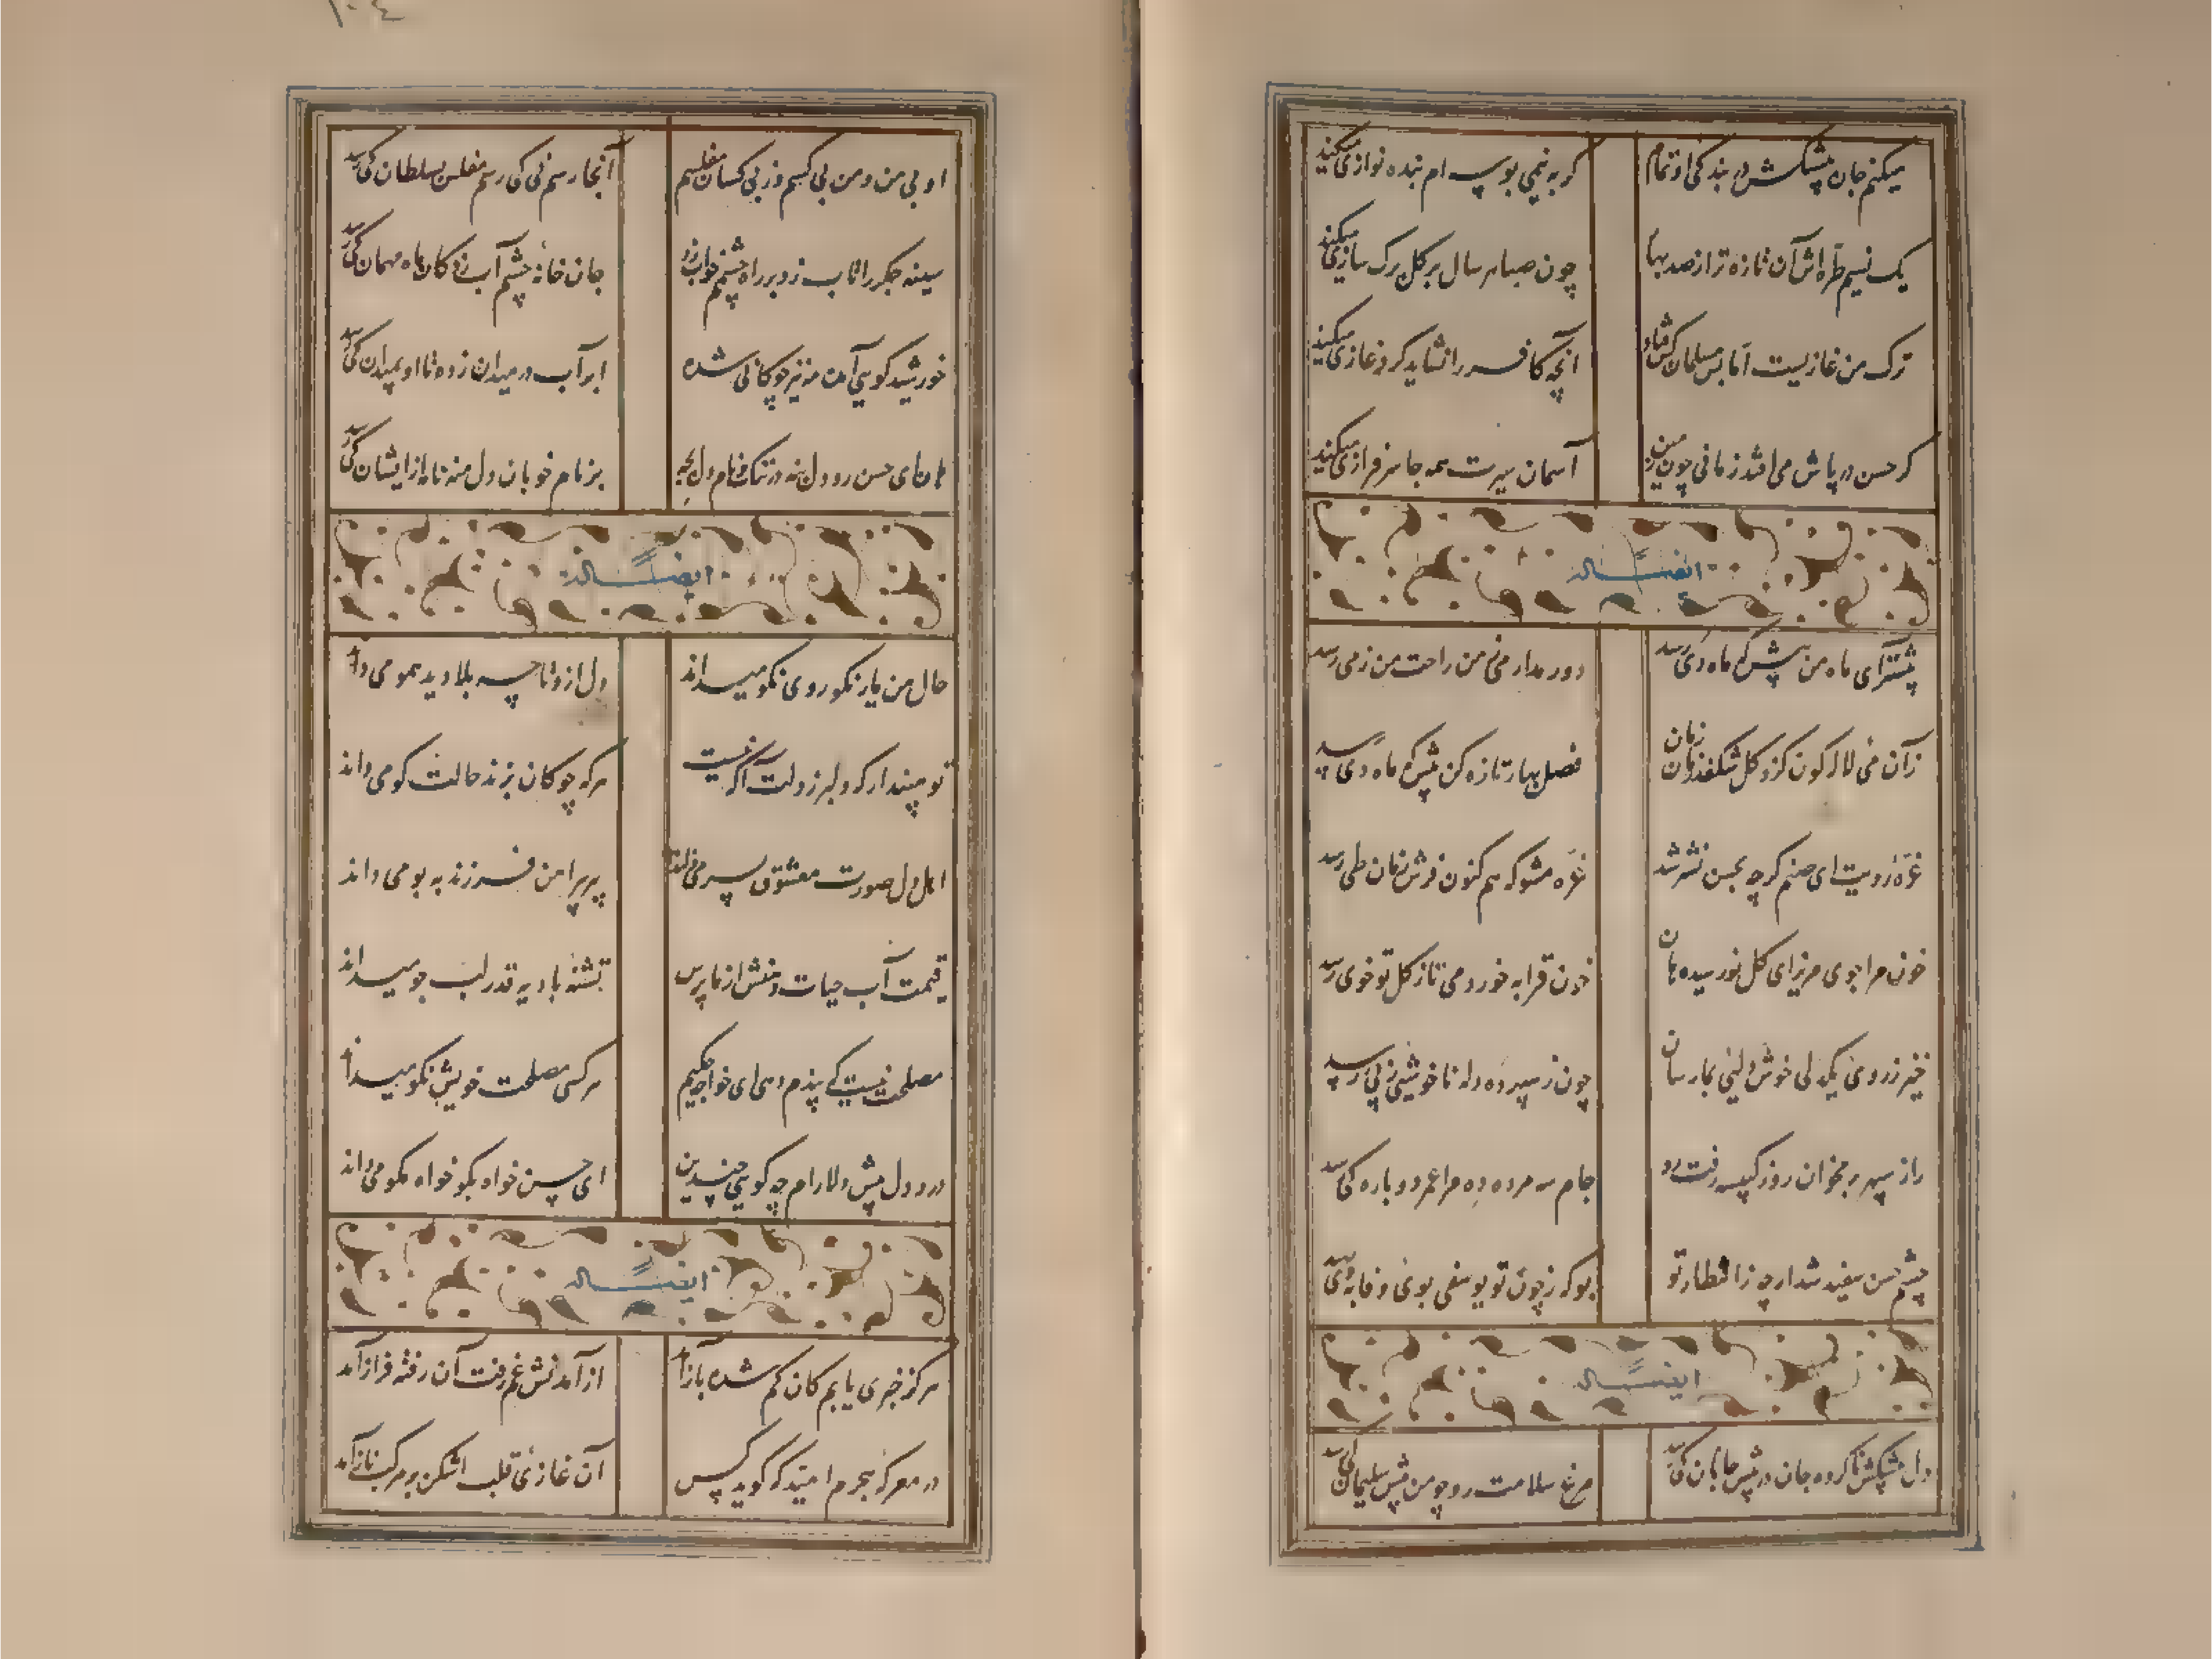 میکنم جان پیشکش در بندگی او تمام
کو به نیمی بوسه ام بنده نوازی میکند
یک نسیم طره اش آن تازه تر از صد بهار
چون صبا هر سال بر گل برک سازی میکند
ترک من غازیست اما بس مسلمان کش فتاد
آنچه کافر را نشاید کرد غازی میکند
کر حسن در پاش می افتد زمانی چون زمین
آسمان سیرت همه جا سرفرازی میکند
ایضاً له
پیشتر آی ماه من پیش که ماه دی رسد
دور مدار می ز من راحت من ز می رسد
زان می لاله کون کزو کل شکفد زمان زمان
فصل بهار تازه کن پیش که ماه دی رسد
غره ز رویت ای صنم کرچه بحسن نشر شد
غره مشو که هم کنون فرش زمان طی رسد
خون مرا جوی مریز ای کل نورسیده هان
خون قرابه خور و می تا ز کل تو خوی رسد
خیز ز روی یکدلی خوش دلیی بما رسان
چون ز سپهر ده دله ناخوشی ز پی رسد
راز سپهر بر مخوان روز کیسه رفت رو
جام سه مرده ده مرا عمر دوباره کی رسد
چشم حسن سفید شد ارچه ز انتظار تو
بو که ز چون تو یوسفی بوی وفا به وی رسد
ایضاً له
دل پیشکش نا کرده جان در پیش جانان کی رسد
مرغ سلامت رو چو من پیش سلیمان کی رسد
او بی من و من بی کسم وز بی کسان مفلسم
آنجا رسم نی کی رسم مفلس بسلطان کی رسد
سینه جکر را تاب زد بر راه چشمم خواب زد
جان خانهٔ چشم آب زد کان ماه مهمان کی رسد
خورشید کویی آمده مه نیز چوکانی شده
ابر آب در میدان زده تا او بمیدان کی رسد
هان ای حسن رو دل منه در تنک نام دل بجه
بر نام خوبان دل منه تا نامه از ایشان کی رسد
ایضاً له
حال من یار نکو روی نکو میداند
دل ازو تا چه بلا دید همو می داند
تو مپندار که دلبر ز دلت آکه نیست
هرکه چوکان بزند حالت کو می داند
اهل دل صورت معشوق بسر می دانند
پیر پیراهن فرزند به بو می داند
قیمت آب حیات دهنش از ما پرس
تشنهٔ بادیه قدر لب جو میداند
مصلحت نیست که پندم دهی ای خواجه حکیم
هر کسی مصلحت خویش نکو میداند
درد دل پیش دلارام چه کویی چندین
ای حسن خواه بکو خواه مکو می داند
ایضاً له
هرکز خبری یابم کان کم شده باز آمد
از آمدنش غم رفت آن رفته فراز آمد
در معرکهٔ هجرم امید که کوید کس
آن غازی قلب اشکن بر مرکب ناز آمد